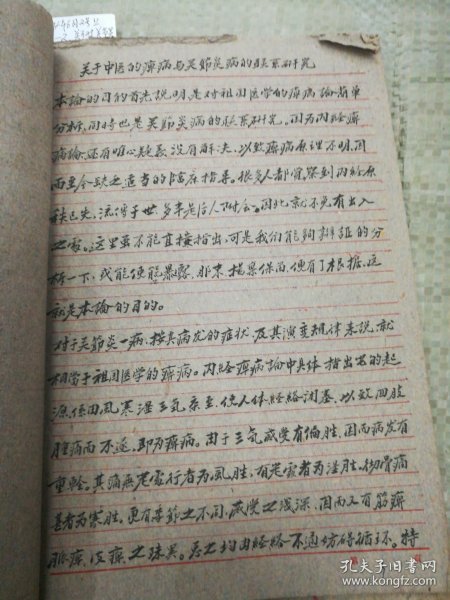 关于中医的痹病与关節炎病的联系研究
本論的目的首先說明是对祖国医学的痹病論簡单
分析,同時也是关節炎病的联系研究。因为内经痹
病論还有唯心疑義没有解决,以致痹病原理不明,因
而至今缺乏适当的临床指导。很多人都覌察到内经原
秩已失,流傳于世多半是后人附会。因此就不免有出入
之家。这里虽不能直接指出,可是我们能夠詳細的分
析一下,或能使能暴露,那末揚棄保留便有了根据,这
就是本論的目的。
对于关節炎一病,按其病发的症状,及其演变規律来說,就
相當于祖国医学的痹病。内经痹病論中具体指出它的起
源係因風寒湿三气杂至,使人体经絡闭塞,以致四肢
腫痛而不遂,即为痹病。由于三气感受有偏胜,因而病发有
重輕。其痛無定處行者为風胜,有定處者为湿胜,彻骨痛
甚者为寒胜。更有季節之不同,感受之浅深,因而又有筋痹
脈痹,皮痹之殊異。总之均由经絡不通妨碍循环。特
孔夫子旧书网